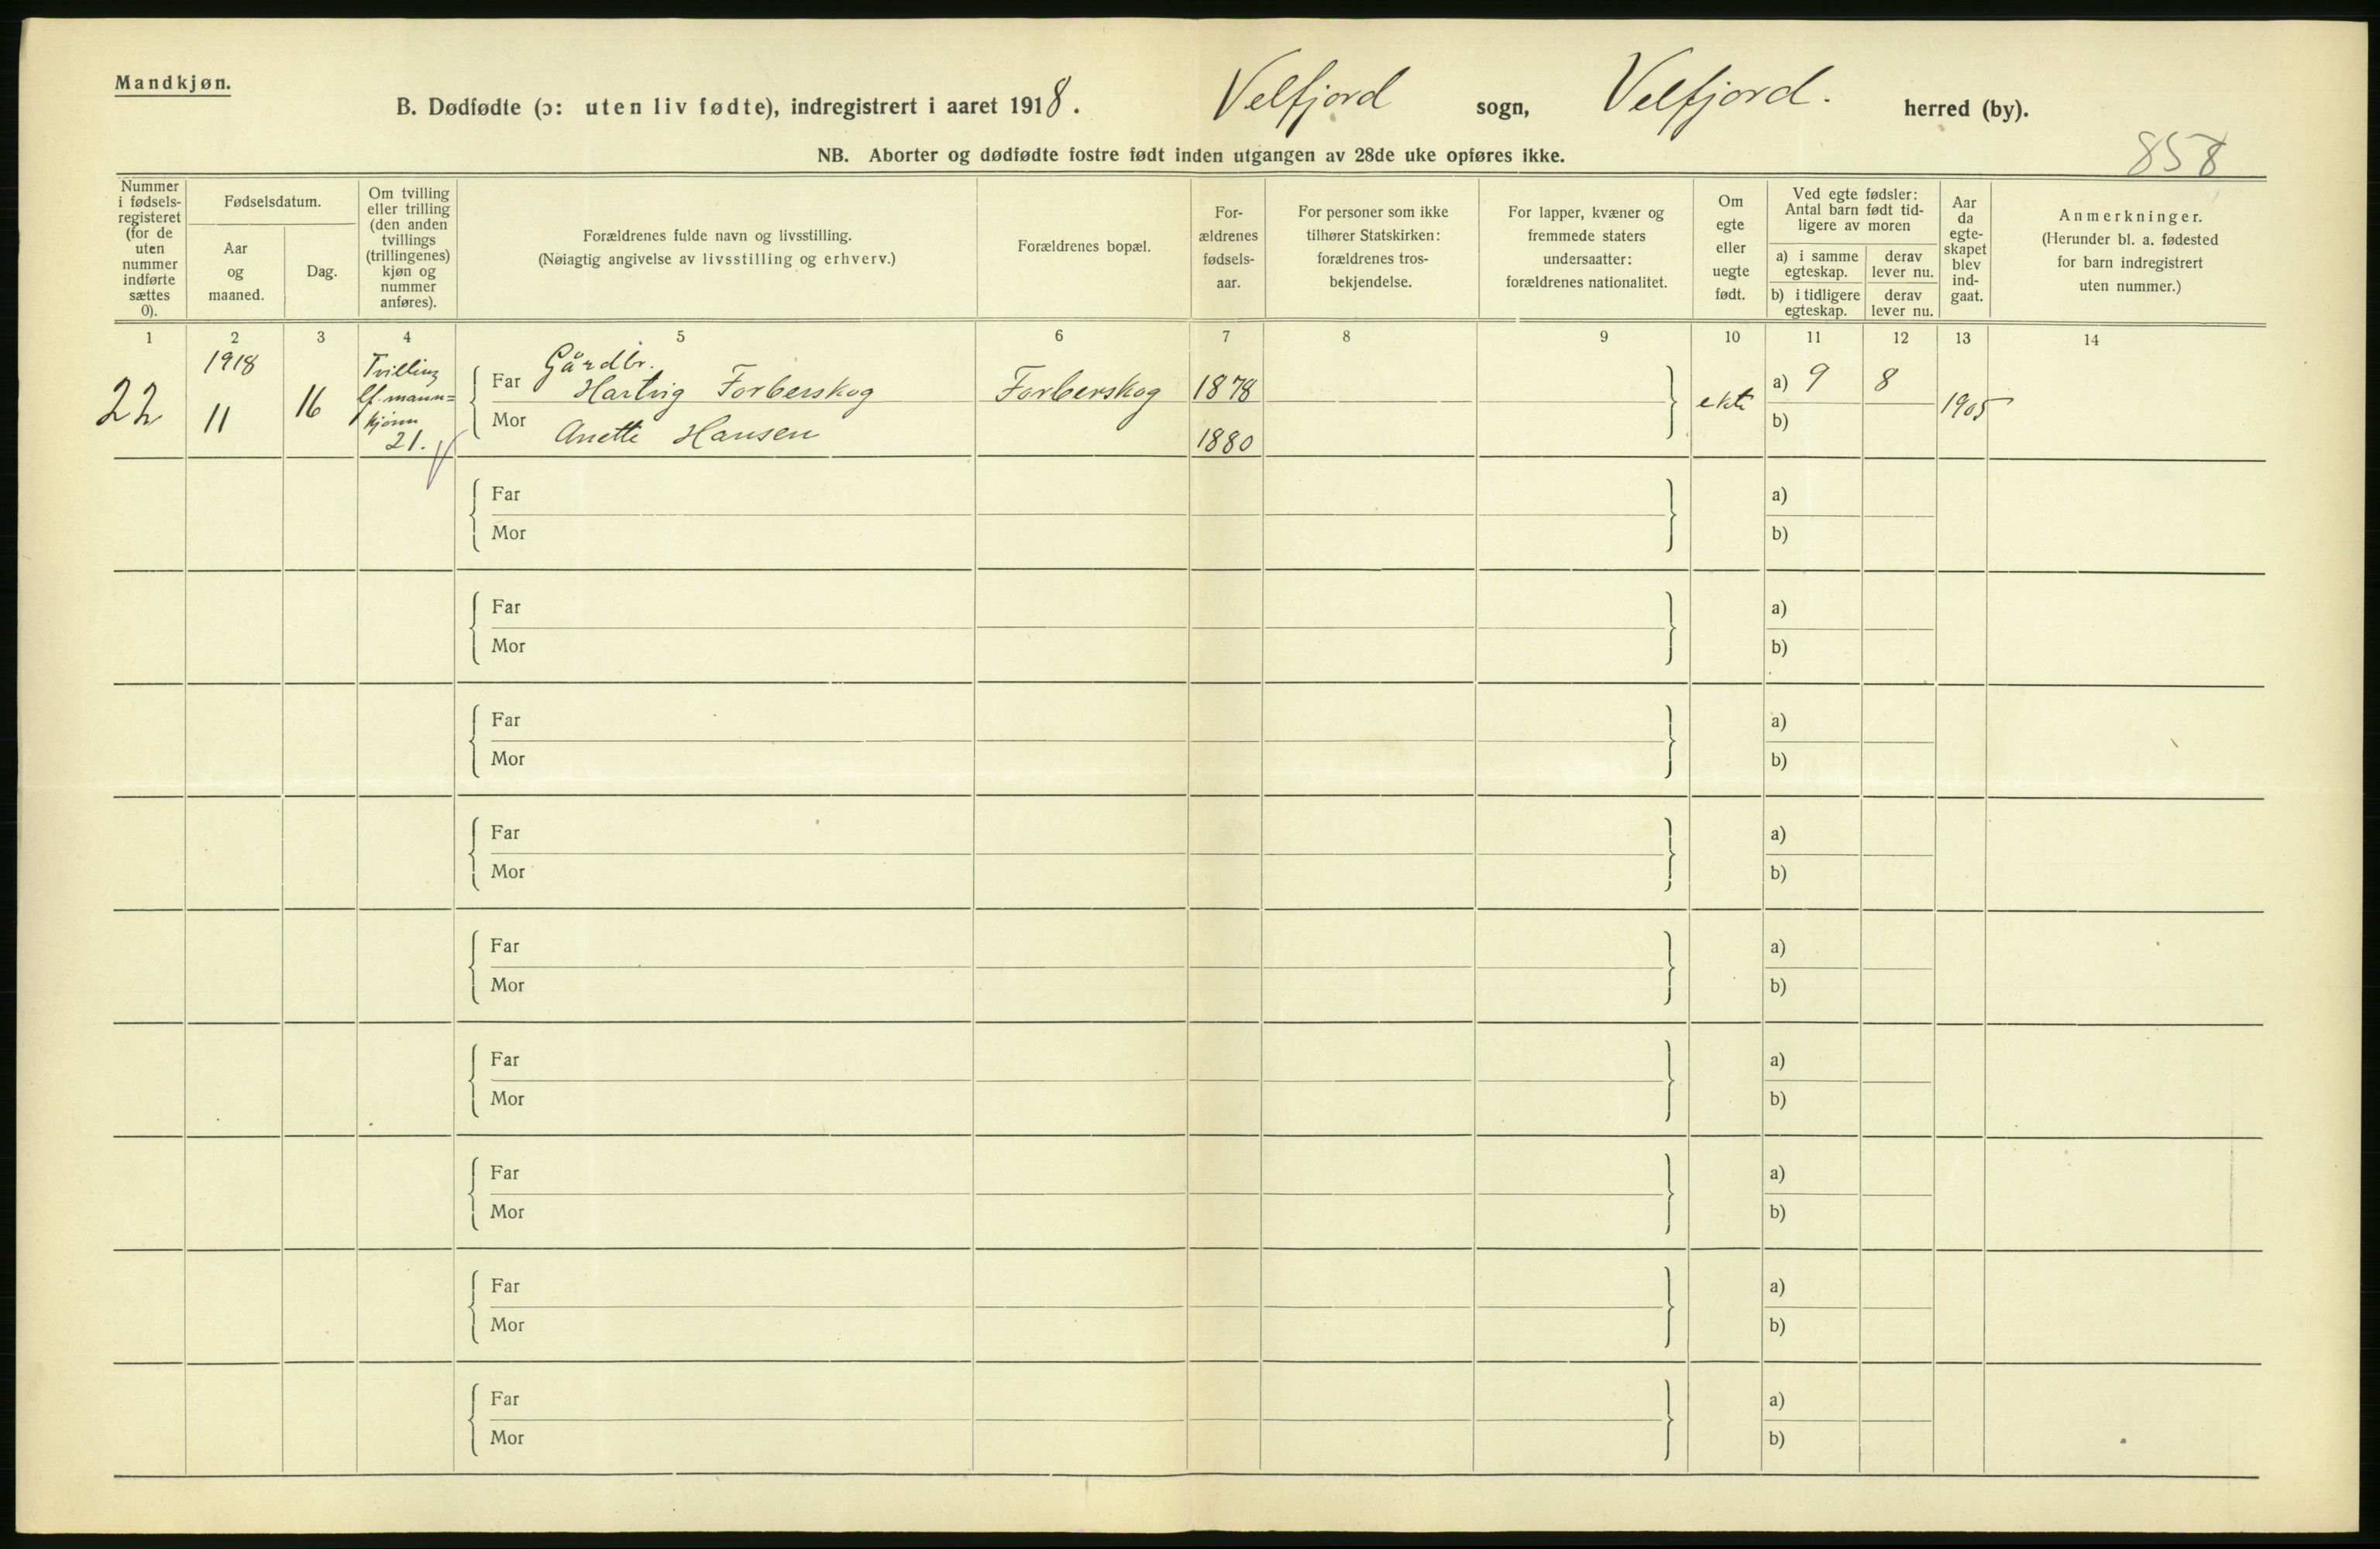 Mandkjøn.
B. Dødfødte (ɔ: uten liv fødte), indregistrert i aaret 1918. Velfjord sogn, Velfjord. herred (by).
NB. Aborter og dødfødte fostre født inden utgangen av 28de uke opføres ikke.
858
Nummer
i fødsels-
registeret
(for de
uten
nummer
indførte
sættes
0).
Fødselsdatum.
Aar
og
maaned.
Dag.
Om tvilling
eller trilling
(den anden
tvillings
(trillingenes)
kjøn og
nummer
anføres).
Forældrenes fulde navn og livsstilling.
(Nøiagtig angivelse av livsstilling og erhverv.)
Forældrenes bopæl.
For-
ældrenes
fødsels-
aar.
For personer som ikke
tilhører Statskirken:
forældrenes tros-
bekjendelse.
For lapper, kvæner og
fremmede staters
undersaatter:
forældrenes nationalitet.
Om
egte
eller
uegte
født.
Ved egte fødsler:
Antal barn født tid-
ligere av moren
a) i samme
egteskap.
derav
lever nu.
b) i tidligere
egteskap.
derav
lever nu.
Aar
da
egte-
skapet
blev
ind-
gaat.
Anmerkninger.
(Herunder bl. a. fødested
for barn indregistrert
uten nummer.)
1 2 3 4 5 6 7 8 9 10 11 12 13 14
22
1918
11
16
Tvilling
cf. mann=
kjønn
21.
Gårdbr.
Far Hartvig Forberskog Forberskog 1878
Mor Anette Hansen 1880
ekte
a) 9 8
b)
1905
Far a)
Mor b)
Far a)
Mor b)
Far a)
Mor b)
Far a)
Mor b)
Far a)
Mor b)
Far a)
Mor b)
Far a)
Mor b)
Far a)
Mor b)
Far a)
Mor b)